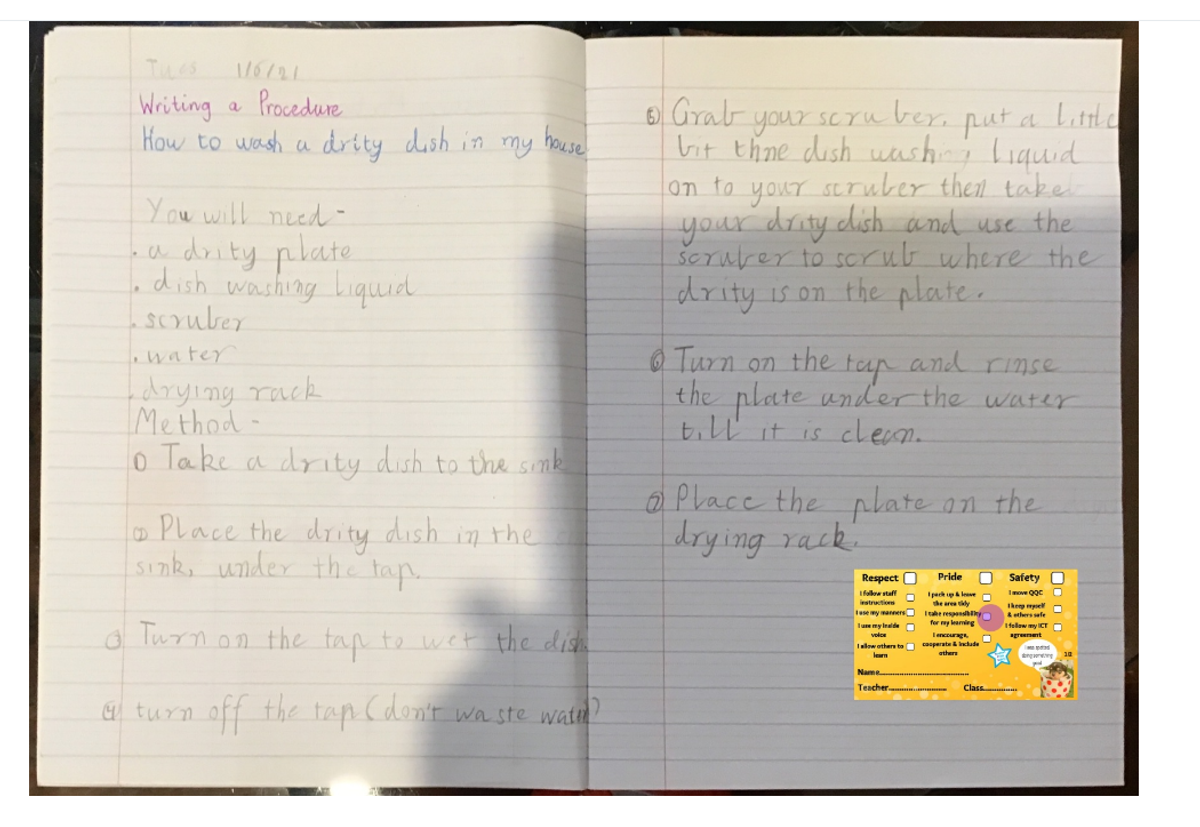 Tues 1/6/21
Writing a Procedure
How to wash a drity dish in my house
You will need-
. a drity plate
. dish washing liquid
. scruber
. water
. drying rack
Method -
① Take a drity dish to the sink
② Place the drity dish in the
sink, under the tap.
③ Turn on the tap to wet the dish.
④ turn off the tap (don't waste water)
⑤ Grab your scruber, put a little
bit thne dish washing liquid
on to your scruber then take
your drity dish and use the
scruber to scrub where the
drity is on the plate.
⑥ Turn on the tap and rinse
the plate under the water
till it is clean.
⑦ Place the plate on the
drying rack.
Respect
I follow staff
instructions
I use my manners
I use my inside
voice
I allow others to
learn
Pride
I pack up & leave
the area tidy
I take responsibility
for my learning
I encourage,
cooperate & include
others
Safety
I move QQC
I keep myself
& others safe
I follow my ICT
agreement
I was spotted
doing something
good
10
Name
Teacher Class